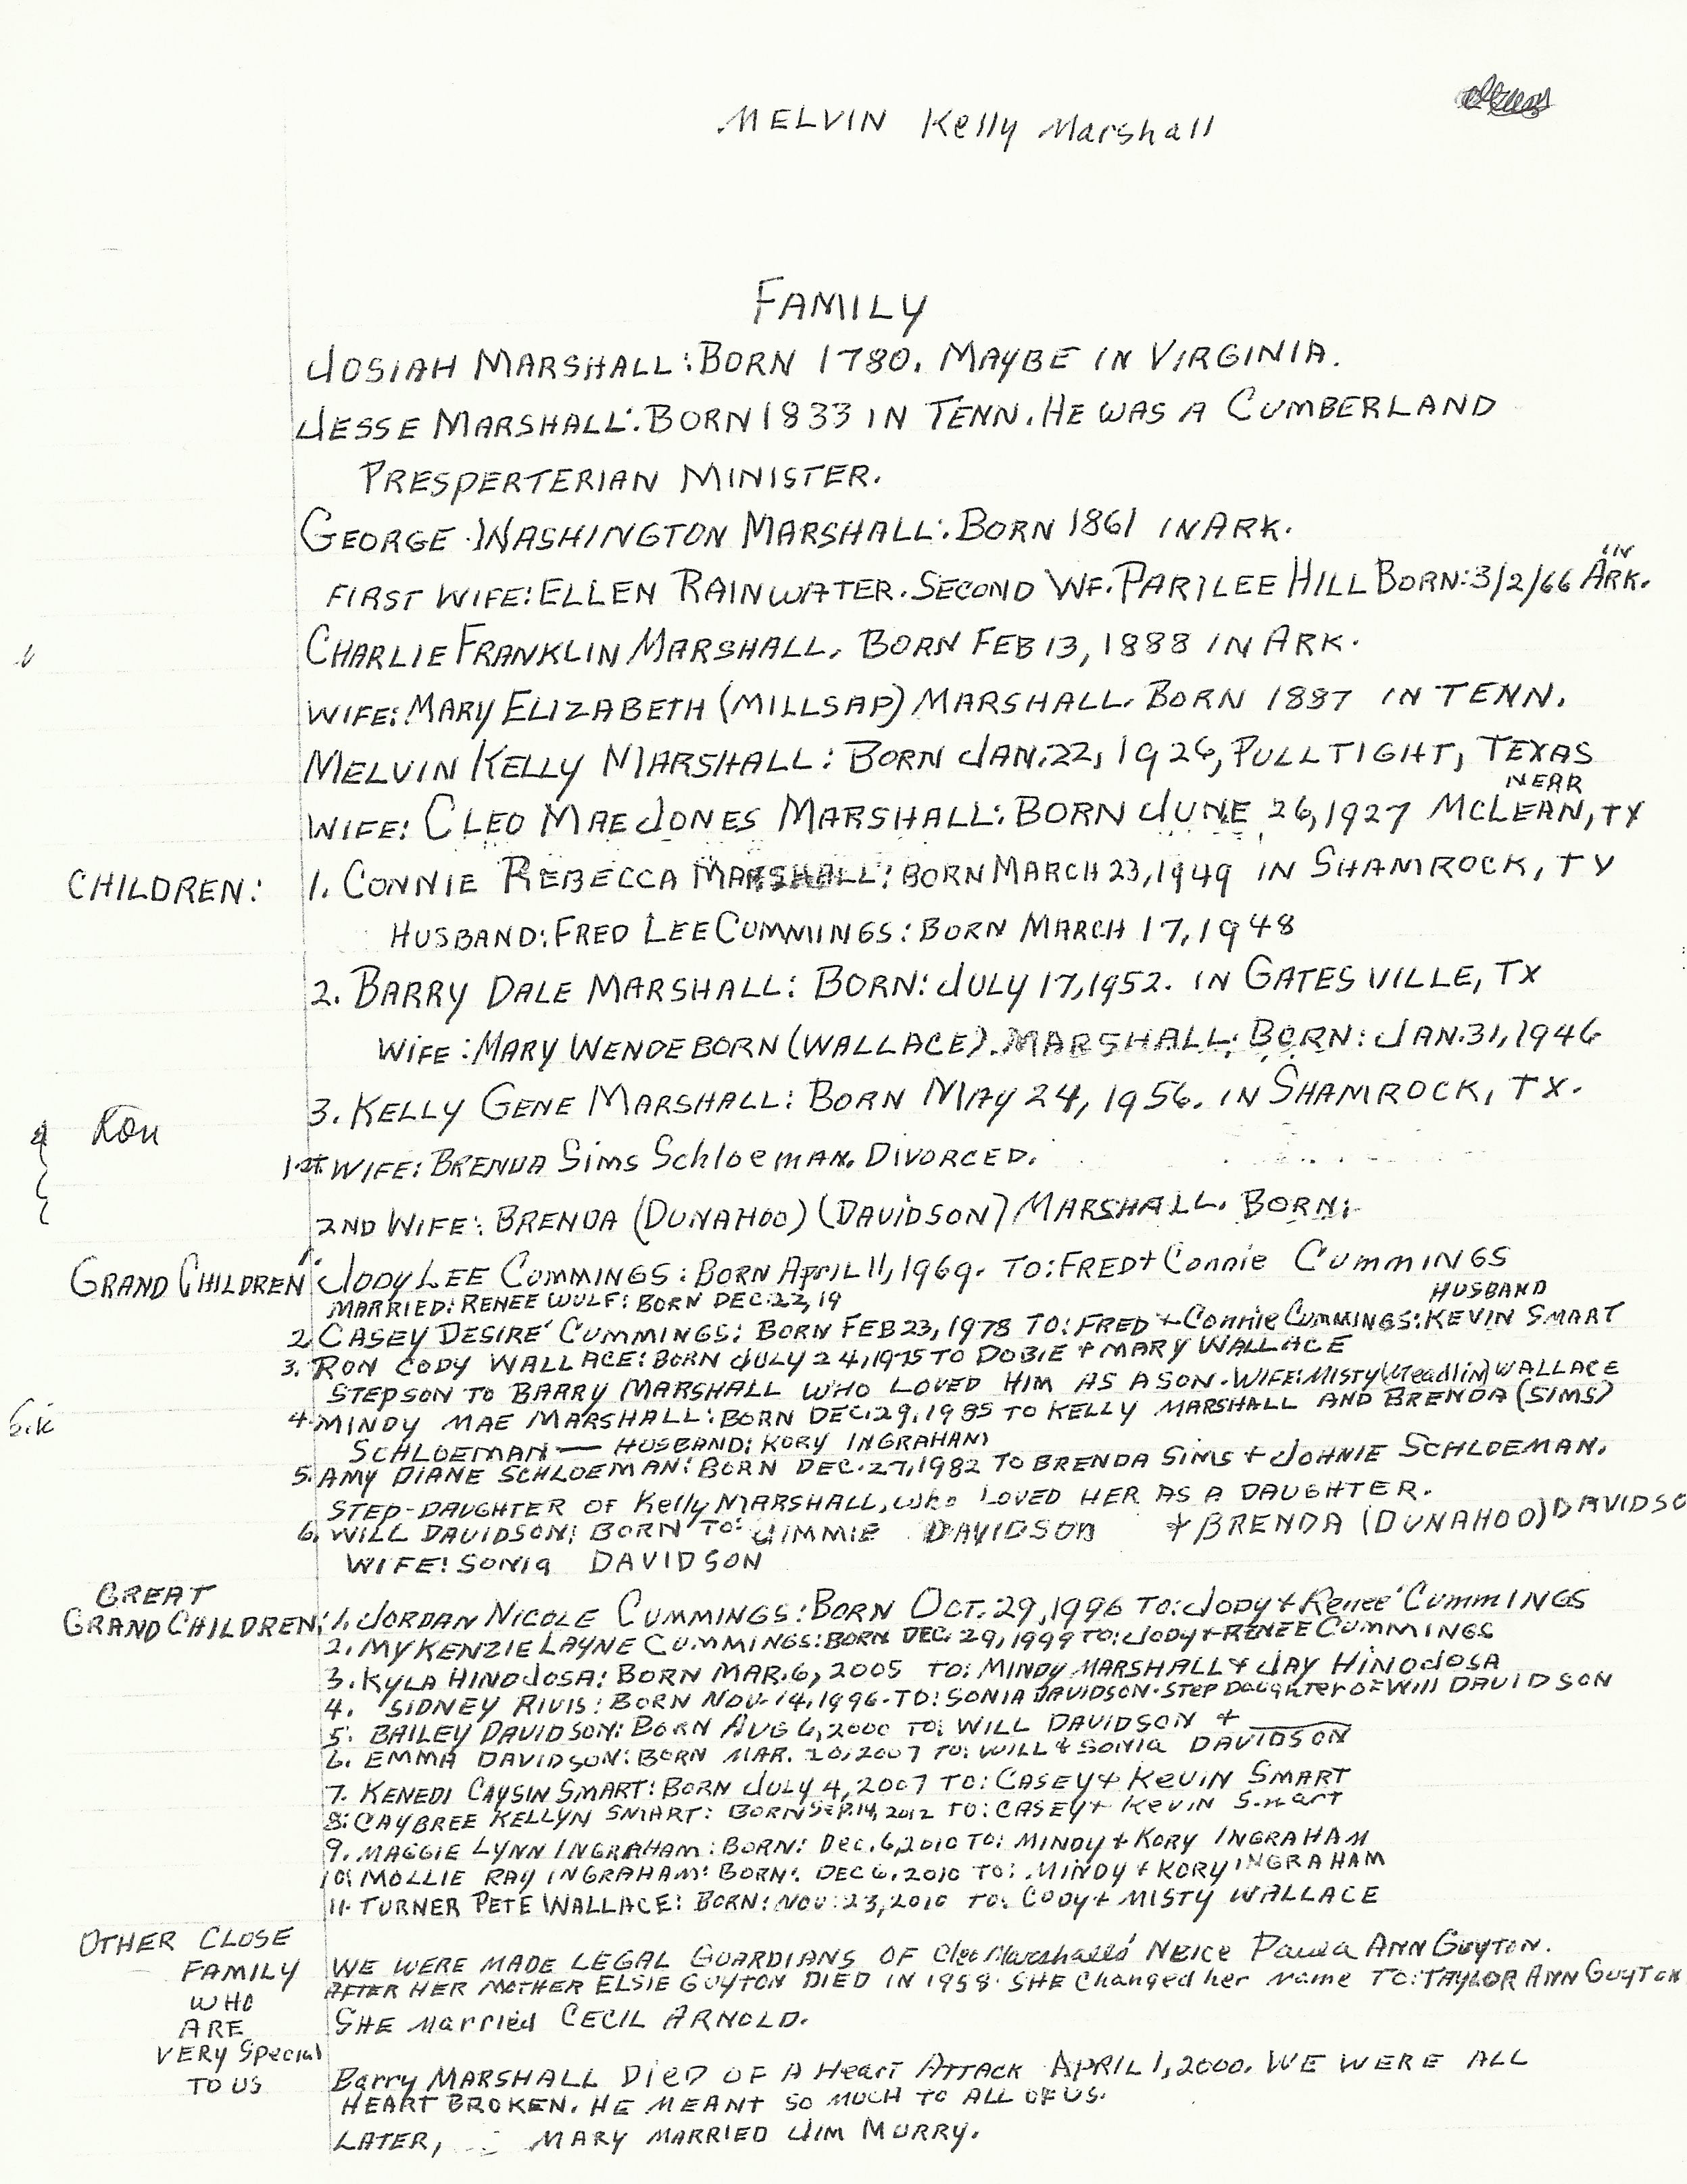 MELVIN Kelly Marshall
FAMILY
JOSIAH MARSHALL: BORN 1780. MAYBE IN VIRGINIA.
JESSE MARSHALL: BORN 1833 IN TENN. HE WAS A CUMBERLAND
PRESPERTERIAN MINISTER.
GEORGE WASHINGTON MARSHALL: BORN 1861 IN ARK.
FIRST WIFE: ELLEN RAINWATER. SECOND WF. PARILEE HILL BORN: 3/2/66 IN ARK.
CHARLIE FRANKLIN MARSHALL. BORN FEB 13, 1888 IN ARK.
WIFE: MARY ELIZABETH (MILLSAP) MARSHALL. BORN 1887 IN TENN.
MELVIN KELLY MARSHALL: BORN JAN. 22, 1926, PULLTIGHT, TEXAS
WIFE: CLEO MAE JONES MARSHALL: BORN JUNE 26, 1927 NEAR MCLEAN, TX
CHILDREN: 1. CONNIE REBECCA MARSHALL: BORN MARCH 23, 1949 IN SHAMROCK, TX
HUSBAND: FRED LEE CUMMINGS: BORN MARCH 17, 1948
2. BARRY DALE MARSHALL: BORN: JULY 17, 1952. IN GATESVILLE, TX
WIFE: MARY WENDEBORN (WALLACE). MARSHALL: BORN: JAN. 31, 1946
3. KELLY GENE MARSHALL: BORN MAY 24, 1956. IN SHAMROCK, TX.
Ron
1st WIFE: BRENDA Sims Schloeman. DIVORCED.
2ND WIFE: BRENDA (DUNAHOO) (DAVIDSON) MARSHALL. BORN:
GRAND CHILDREN 1. JODY LEE CUMMINGS: BORN April 11, 1969. TO: FRED + Connie CUMMINGS
MARRIED: RENEE WULF: BORN DEC. 22, 19
2. CASEY DESIRE' CUMMINGS: BORN FEB 23, 1978 TO: FRED + Connie CUMMINGS: HUSBAND KEVIN SMART
3. RON CODY WALLACE: BORN JULY 24, 1975 TO DOBIE + MARY WALLACE
STEPSON TO BARRY MARSHALL WHO LOVED HIM AS A SON. WIFE: MISTY (Meadlin) WALLACE
4. MINDY MAE MARSHALL: BORN DEC. 29, 1985 TO KELLY MARSHALL AND BRENDA (SIMS)
SCHLOEMAN — HUSBAND: KORY INGRAHAM
5. AMY DIANE SCHLOEMAN: BORN DEC. 27, 1982 TO BRENDA SIMS + JOHNIE SCHLOEMAN.
STEP-DAUGHTER OF Kelly MARSHALL, who LOVED HER AS A DAUGHTER.
6. WILL DAVIDSON: BORN TO: JIMMIE DAVIDSON + BRENDA (DUNAHOO) DAVIDSO
WIFE: SONIA DAVIDSON
GREAT
GRAND CHILDREN: 1. JORDAN NICOLE CUMMINGS: BORN OCT. 29, 1996 TO: JODY + Renee' CUMMINGS
2. MYKENZIE LAYNE CUMMINGS: BORN DEC. 29, 1999 TO: JODY + RENEE CUMMINGS
3. KYLA HINOJOSA: BORN MAR. 6, 2005 TO: MINDY MARSHALL + JAY HINOJOSA
4. SIDNEY RIVIS: BORN NOV. 14, 1996. TO: SONIA DAVIDSON. STEP Daughter OF Will DAVIDSON
5. BAILEY DAVIDSON: BORN AUG 6, 2000 TO: WILL DAVIDSON +
6. EMMA DAVIDSON: BORN MAR. 20, 2007 TO: WILL & SONIA DAVIDSON
7. KENEDI CAYSIN SMART: BORN JULY 4, 2007 TO: CASEY + KEVIN SMART
8. CAYBREE KELLYN SMART: BORN SEP. 14, 2012 TO: CASEY + Kevin Smart
9. MAGGIE LYNN INGRAHAM: BORN: Dec. 6, 2010 TO: MINDY + KORY INGRAHAM
10. MOLLIE RAY INGRAHAM: BORN: DEC 6, 2010 TO: MINDY + KORY INGRAHAM
11. TURNER PETE WALLACE: BORN: NOV. 23, 2010 TO: CODY + MISTY WALLACE
OTHER CLOSE
FAMILY
WHO
ARE
VERY Special
TO US
WE WERE MADE LEGAL GUARDIANS OF Cleo Marshalls' NEICE Paula ANN GUYTON.
AFTER HER MOTHER ELSIE GUYTON DIED IN 1958. SHE Changed her name TO: TAYLOR ANN GUYTON
SHE married CECIL ARNOLD.
Barry MARSHALL DIED OF A Heart ATTACK APRIL 1, 2000. WE WERE ALL
HEART BROKEN. HE MEANT SO MUCH TO ALL OF US.
LATER, MARY MARRIED JIM MURRY.